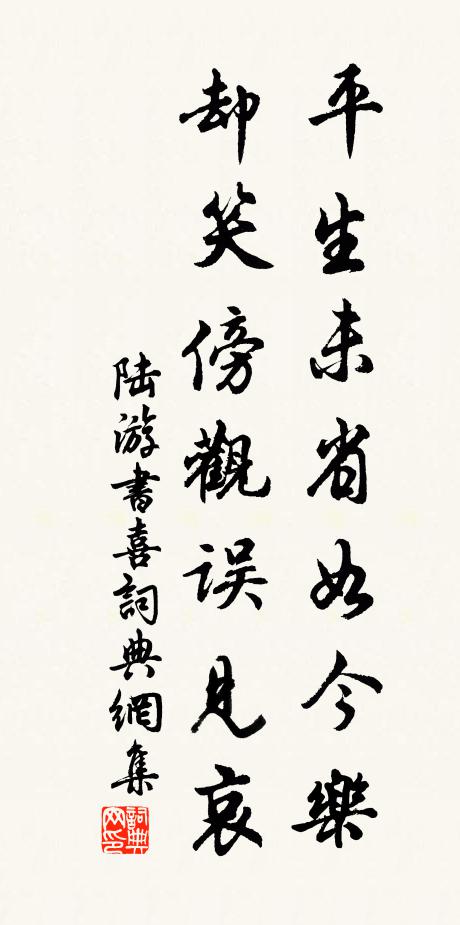 平生未省如今樂
却笑傍觀误見哀
陆游書喜詞典網集
詞典网印